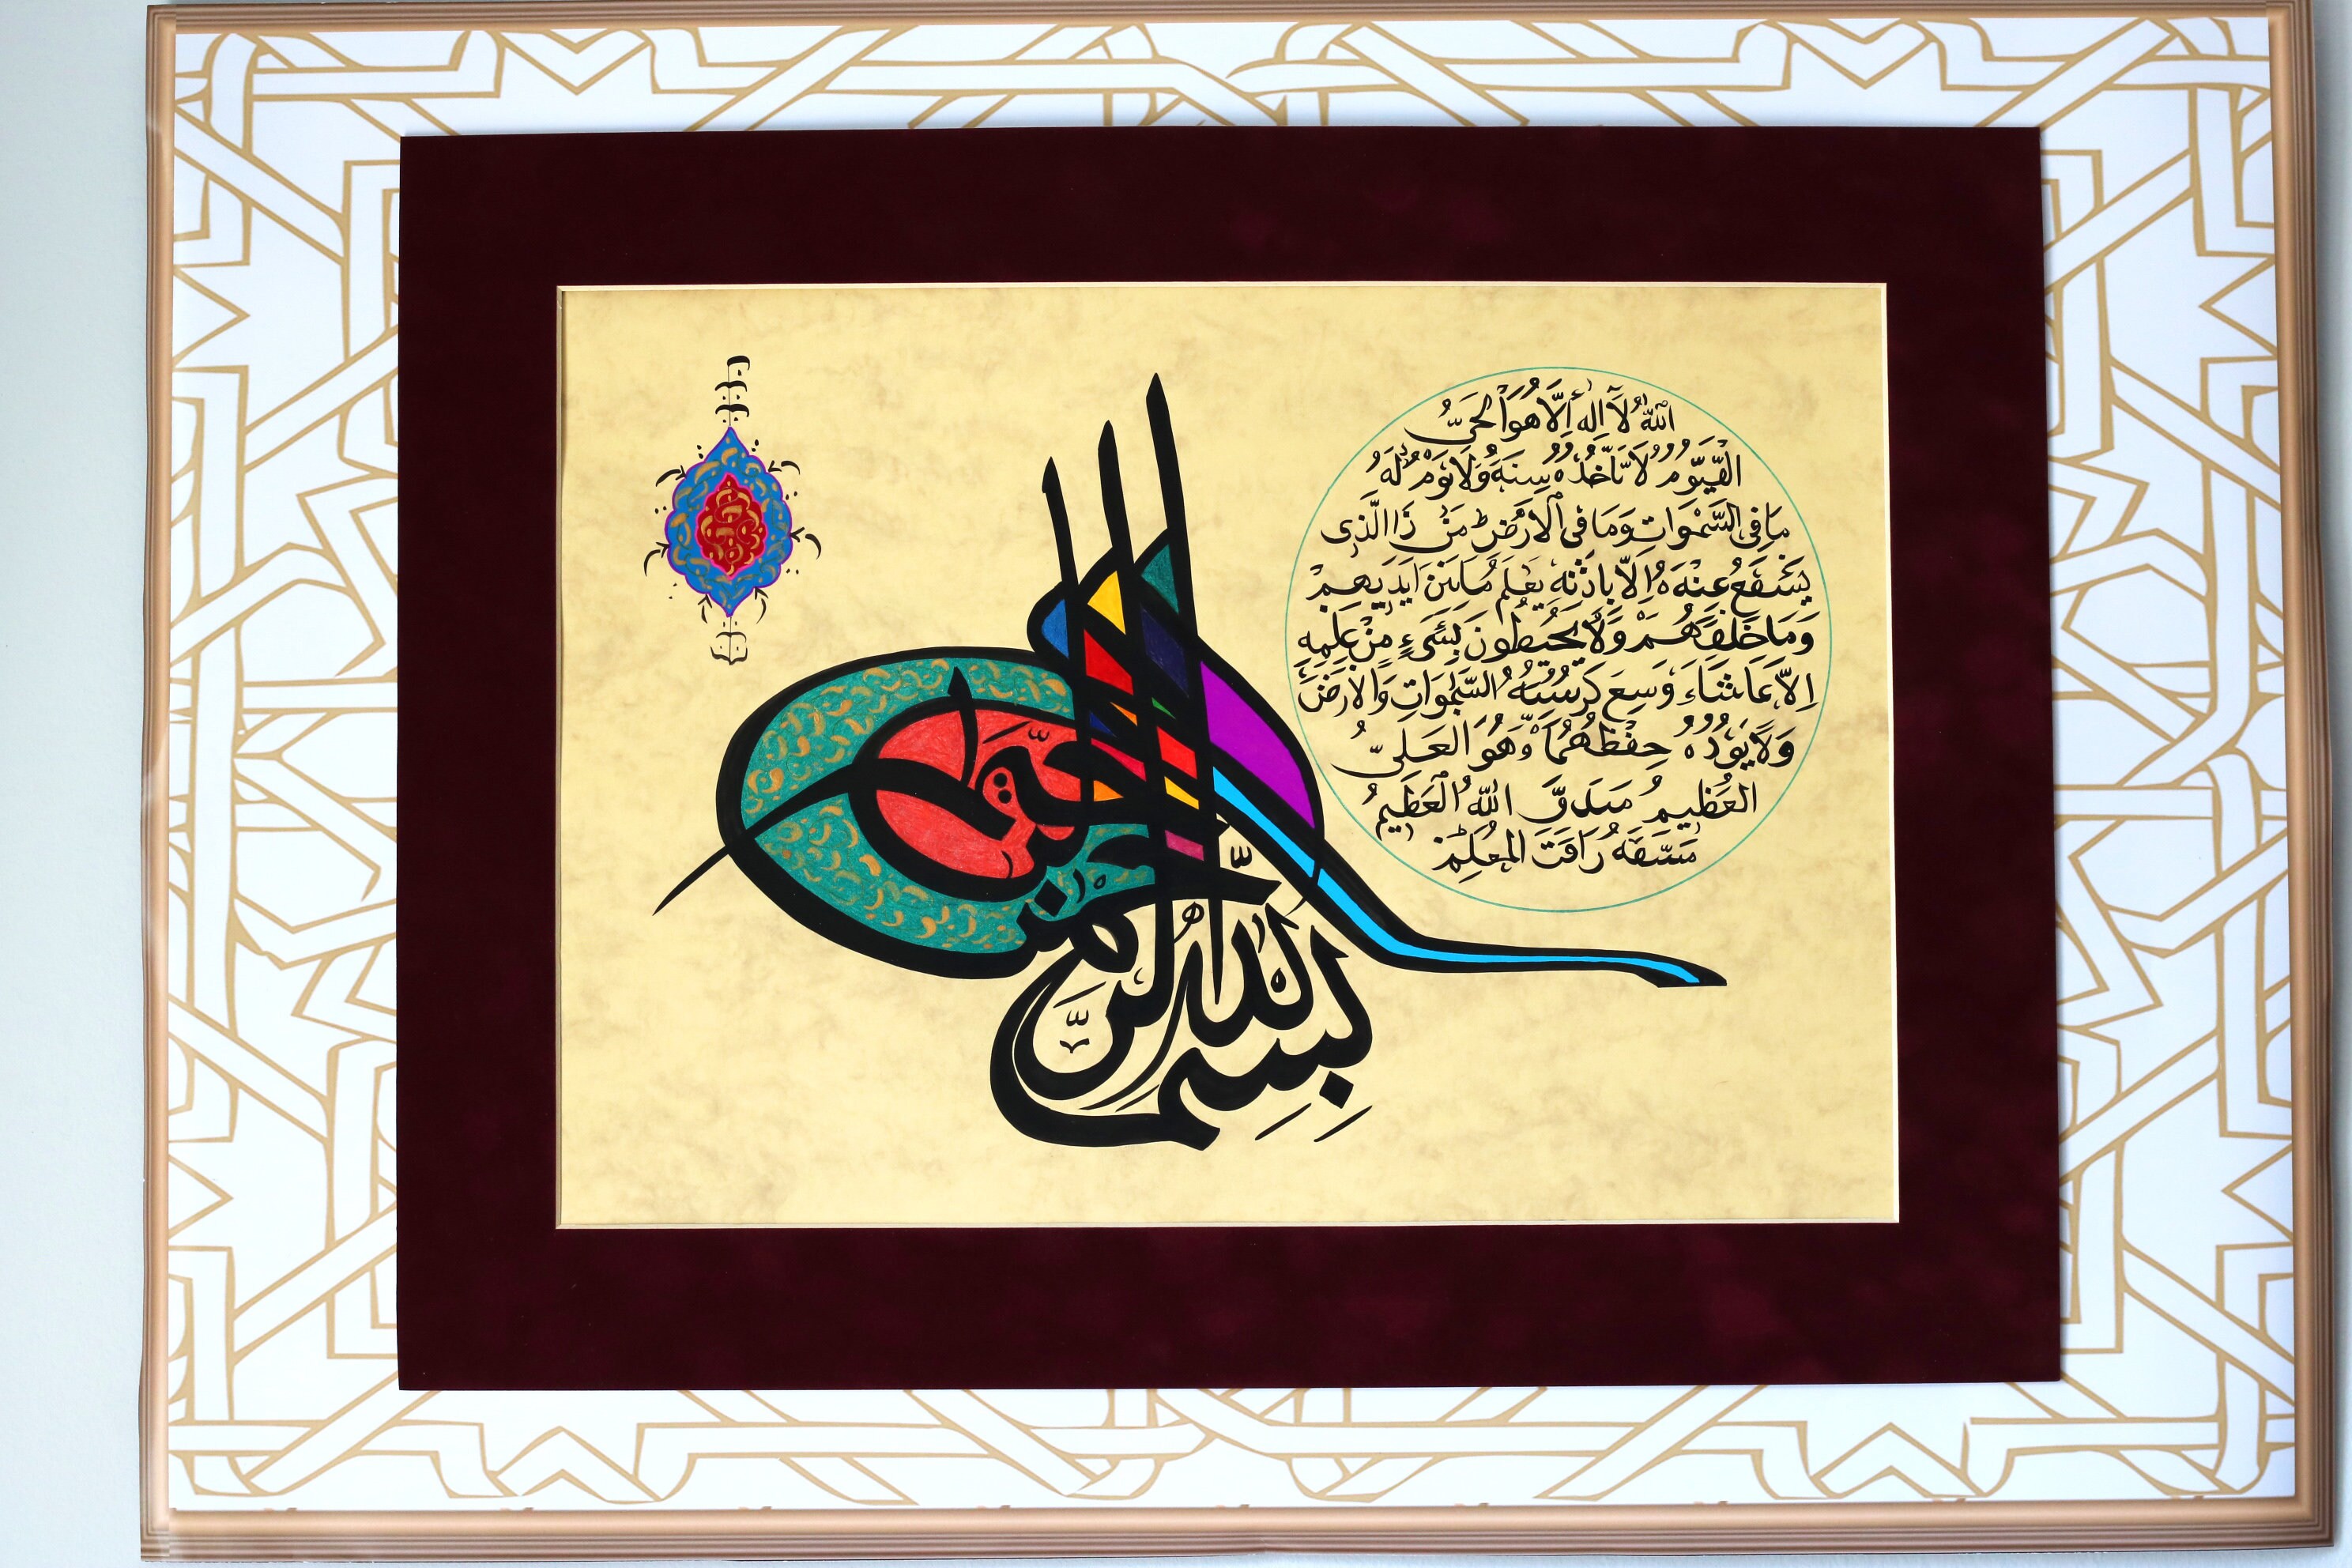 ٱللّٰهُ لَآ اِلٰهَ اِلَّا هُوَ الْحَيُّ
الْقَيُّومُ لَا تَأْخُذُهُ سِنَةٌ وَلَا نَوْمٌ لَهُ
مَا فِى السَّمٰوَاتِ وَمَا فِى الْاَرْضِ مَنْ ذَا الَّذِى
يَشْفَعُ عِنْدَهُ اِلَّا بِاِذْنِهِ يَعْلَمُ مَا بَيْنَ اَيْدِيهِمْ
وَمَا خَلْفَهُمْ وَلَا يُحِيطُونَ بِشَىْءٍ مِنْ عِلْمِهِ
اِلَّا بِمَا شَاءَ وَسِعَ كُرْسِيُّهُ السَّمٰوَاتِ وَالْاَرْضَ
وَلَا يَؤُدُهُ حِفْظُهُمَا وَهُوَ الْعَلِىُّ
الْعَظِيمُ صَدَقَ اللّٰهُ الْعَظِيمُ
بِسْمِ اللّٰهِ الرَّحْمٰنِ الرَّحِيمِ